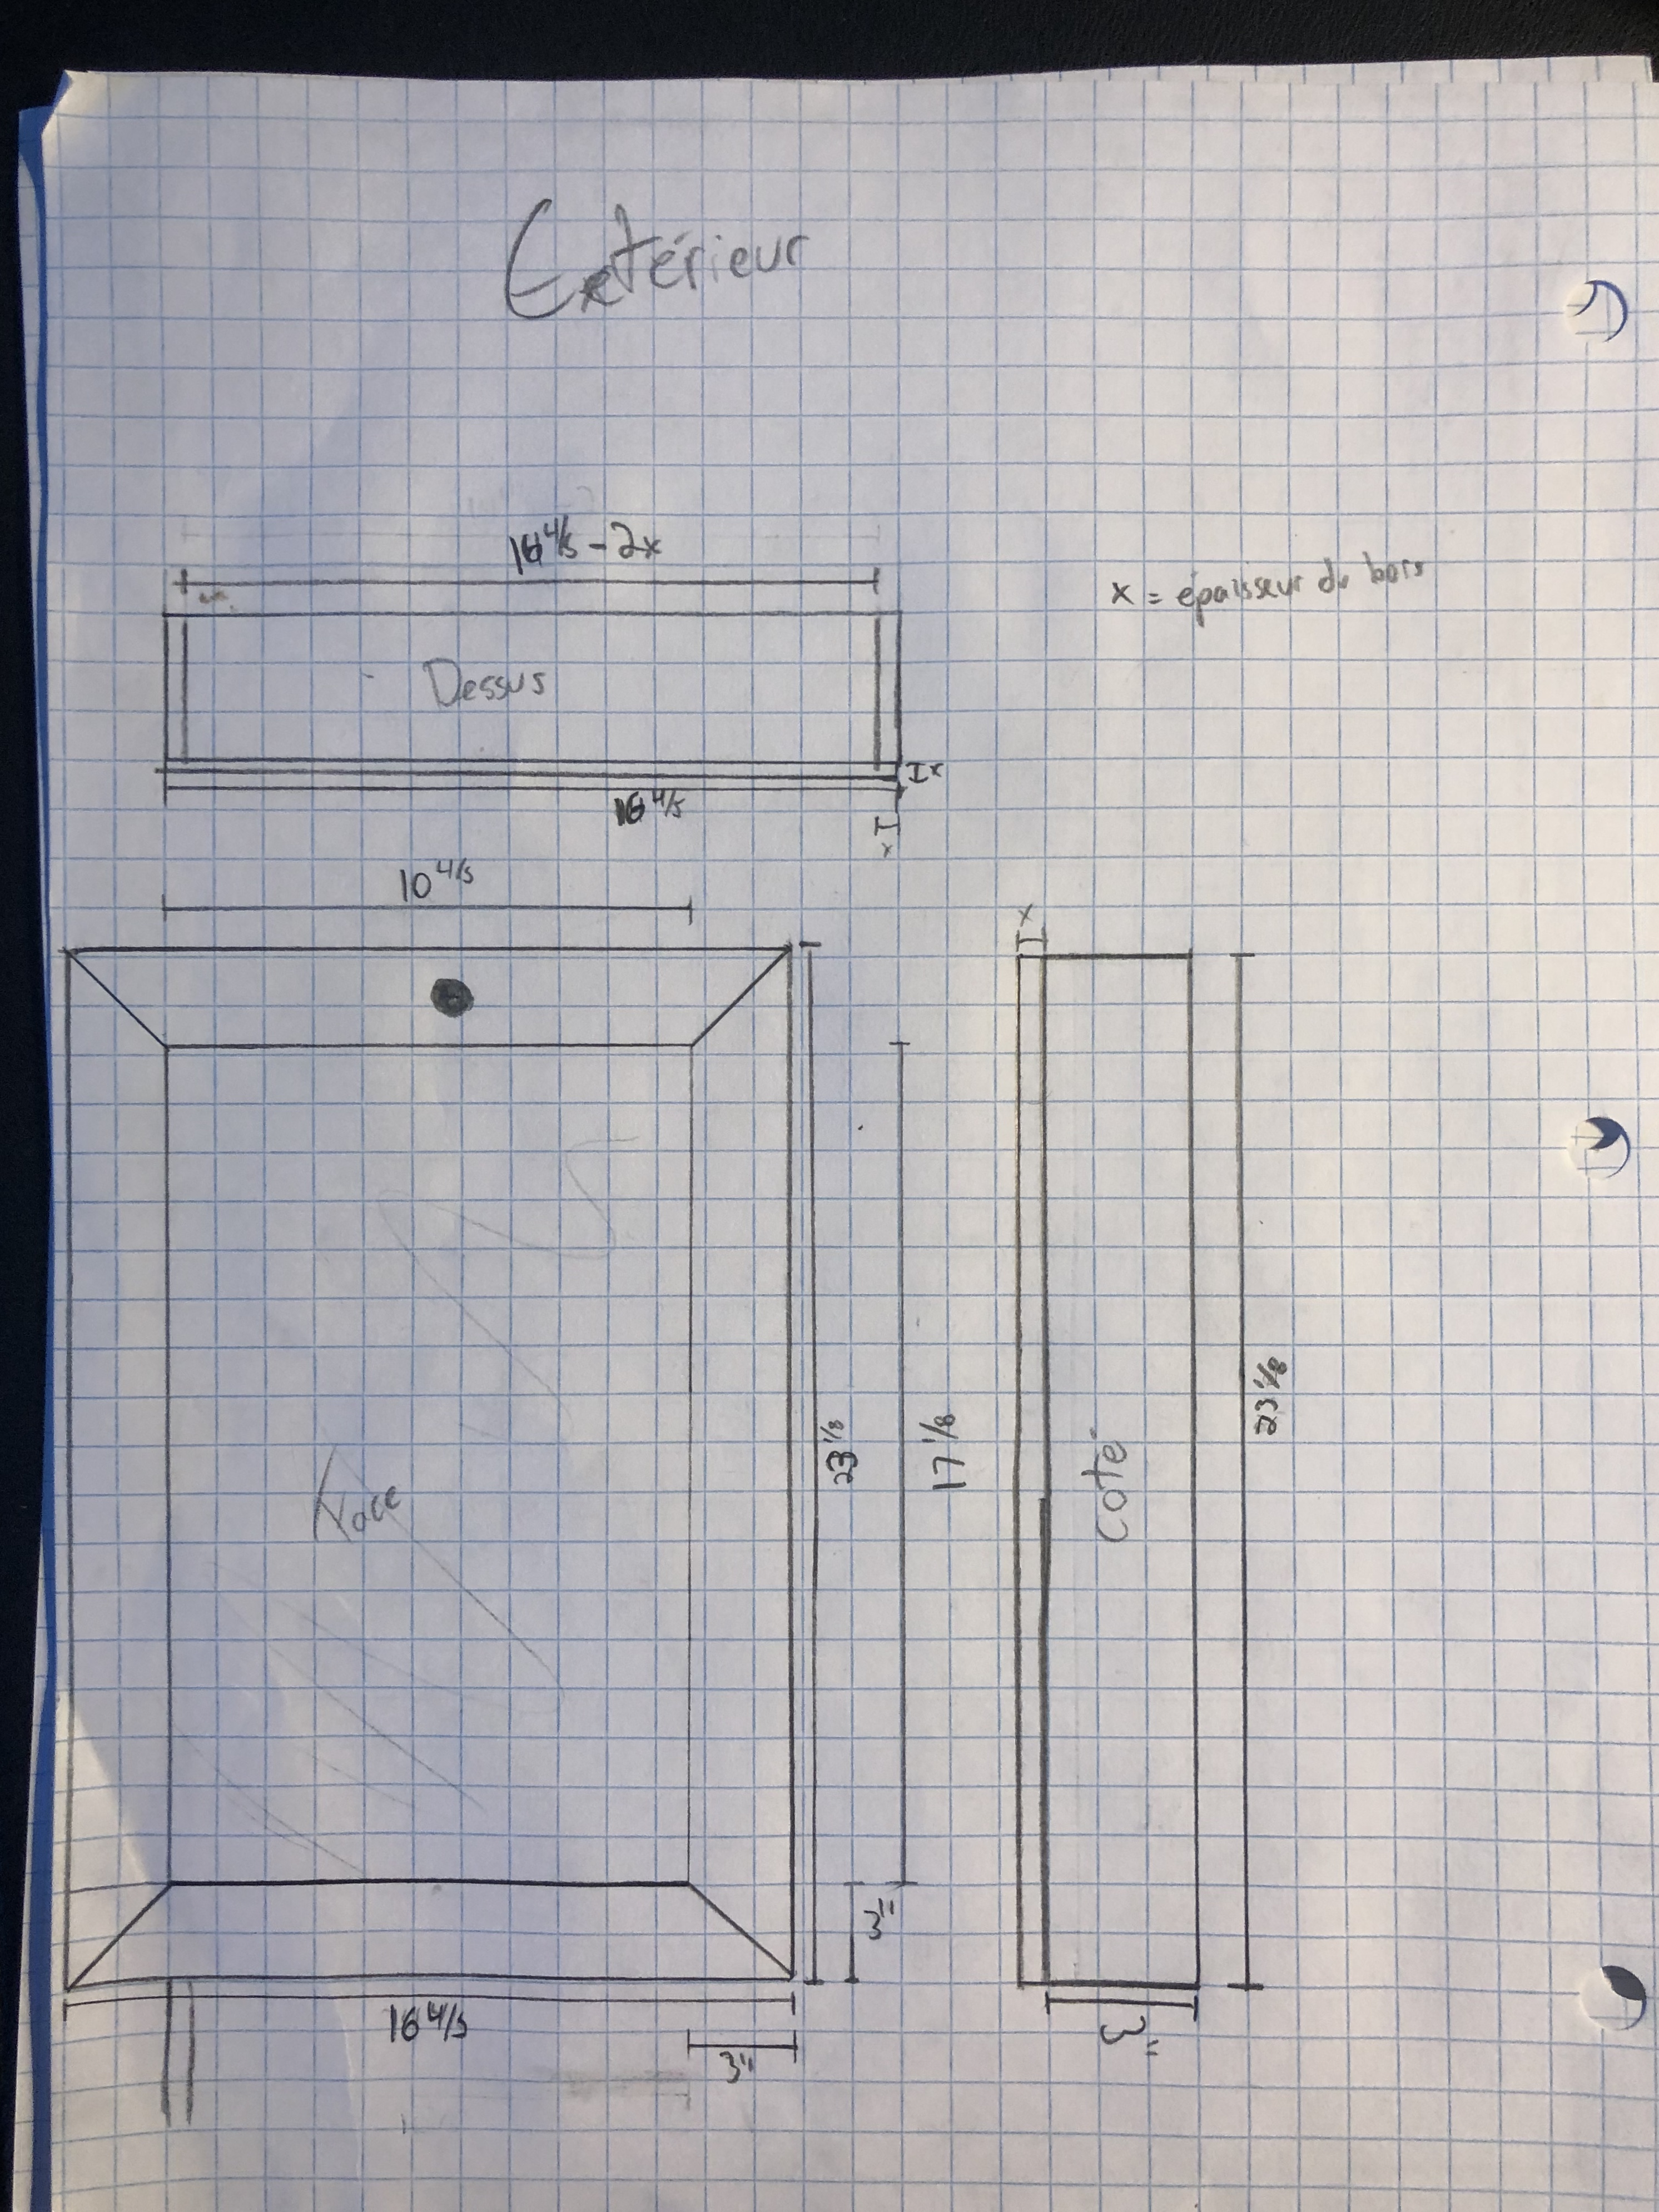 Extérieur
16 4/5 - 2x
x = épaisseur du bois
Dessus
x
16 4/5
x
10 4/5
x
Face
23 1/8
17 1/8
Coté
23 1/8
3"
16 4/5
3"
3"